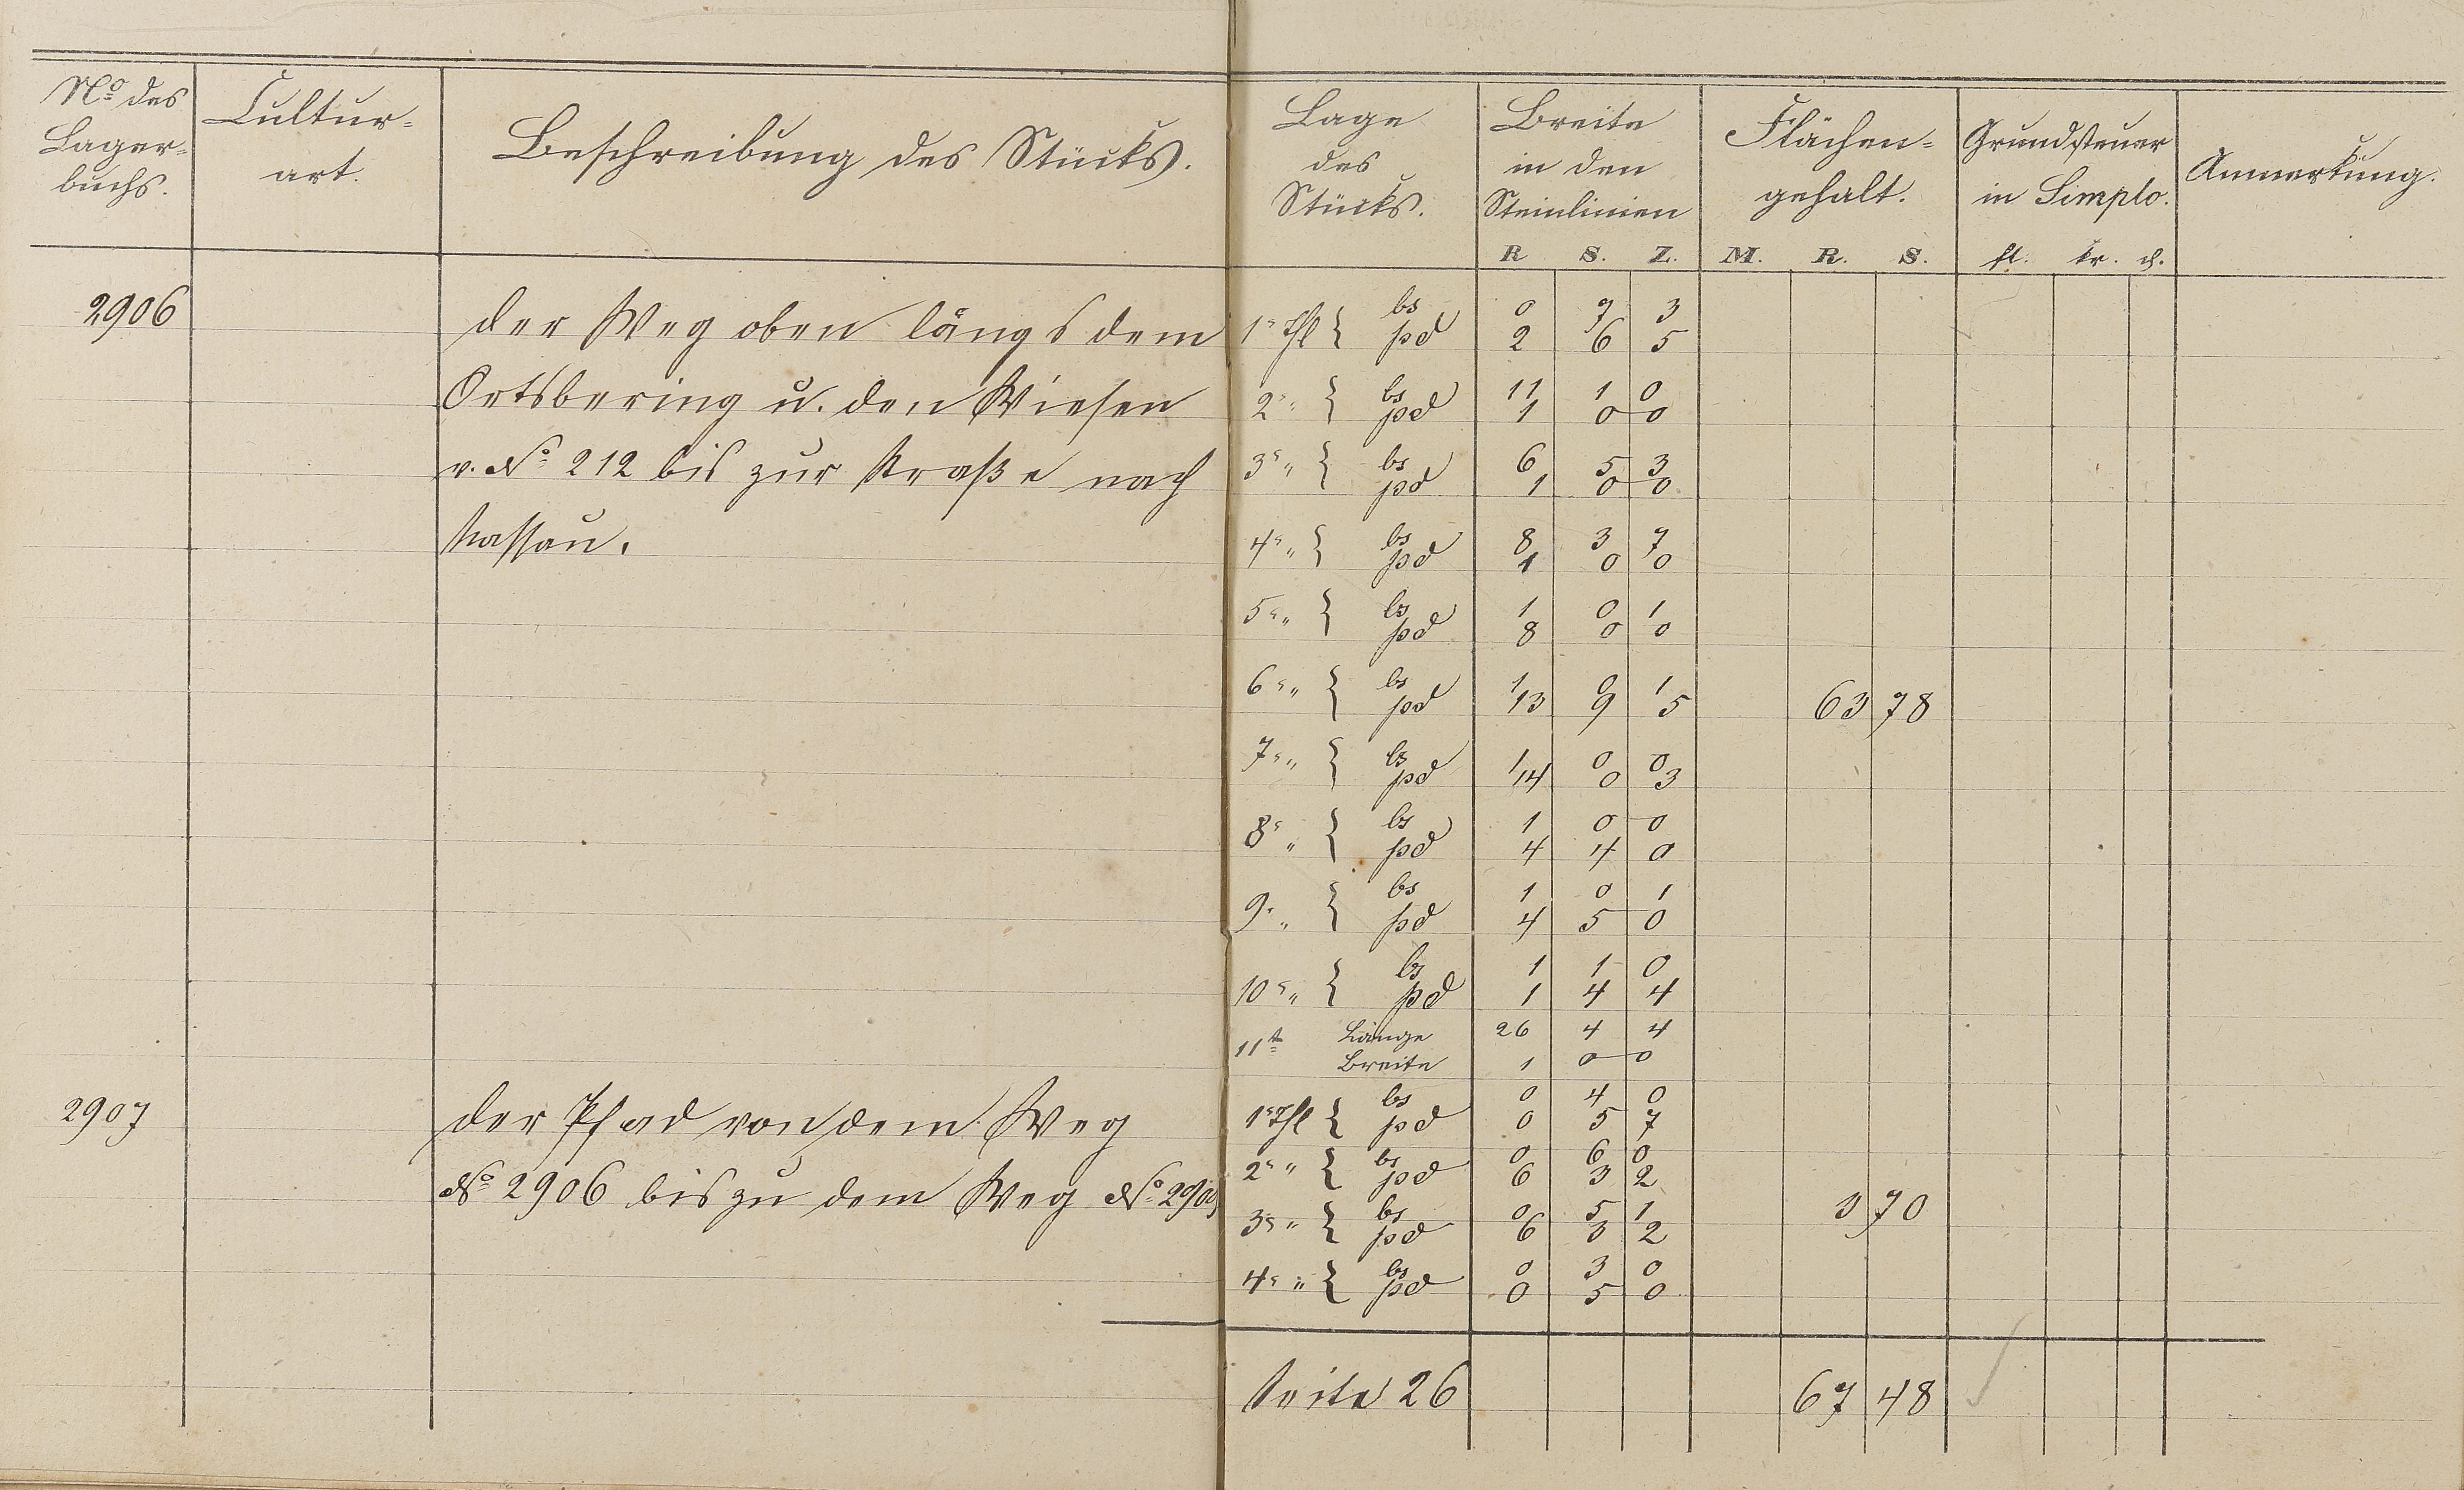 No des
Lager-
buchs.
Cultur-
art.
Beschreibung des Stücks.
Lage
des
Stücks.
Breite
in den
Steinlinien
R S. Z.
Flächen-
gehalt.
M. R. S.
Grundsteuer
in Simplo.
fl. kr. d.
Anmerkung.
2906
der Weg oben längs dem
Ortsbering u. den Wiesen
v. No 212 bis zur Straße nach
Nassau.
1r Thl { bs 0 7 3
pd 2 6 5
2r " { bs 11 1 0
pd 1 0 0
3r " { bs 6 5 3
pd 1 0 0
4r " { bs 8 3 7
pd 1 0 0
5r " { bs 1 0 1
pd 8 0 0
6r " { bs 1 0 1
pd 13 9 5
63 78
7r " { bs 1 0 0
pd 14 0 3
8r " { bs 1 0 0
pd 4 4 0
9r " { bs 1 0 1
pd 4 5 0
10r " { bs 1 1 0
pd 1 4 4
11t Länge 26 4 4
Breite 1 0 0
2907
der Pfad von dem Weg
No 2906 bis zu dem Weg No
1r Thl { bs 0 4 0
pd 0 5 7
2r " { bs 0 6 0
pd 6 3 2
3r " { bs 0 5 1
pd 6 3 2
3 70
4r " { bs 0 3 0
pd 0 5 0
Seite 26
67 48